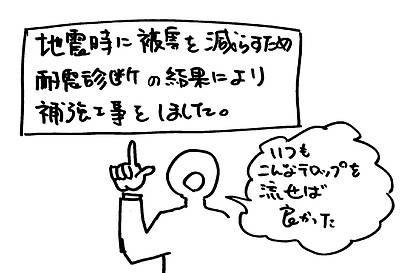 地震時に被害を減らすため
耐震診断の結果により
補強工事をしました。
いつも
こんなテロップを
流せば
良かった